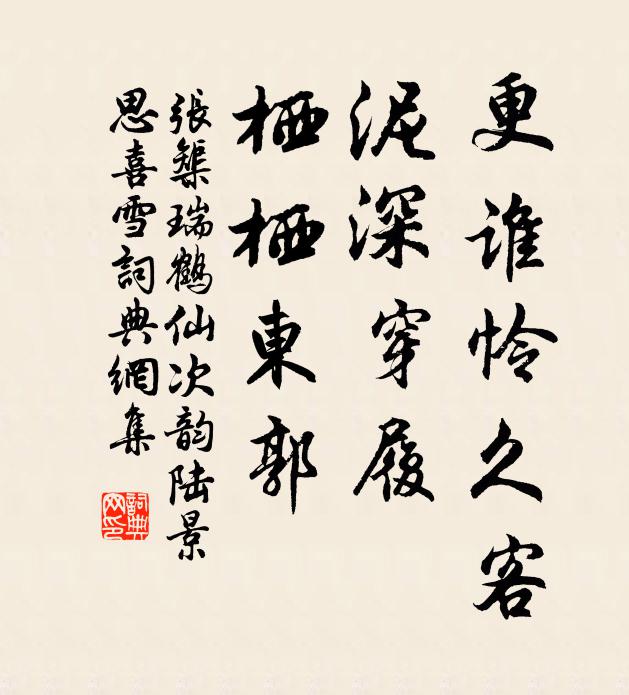 更谁怜久客
泥深穿履
栖栖東郭
張榘瑞鶴仙次韵陆景
思喜雪詞典網集
詞典网印